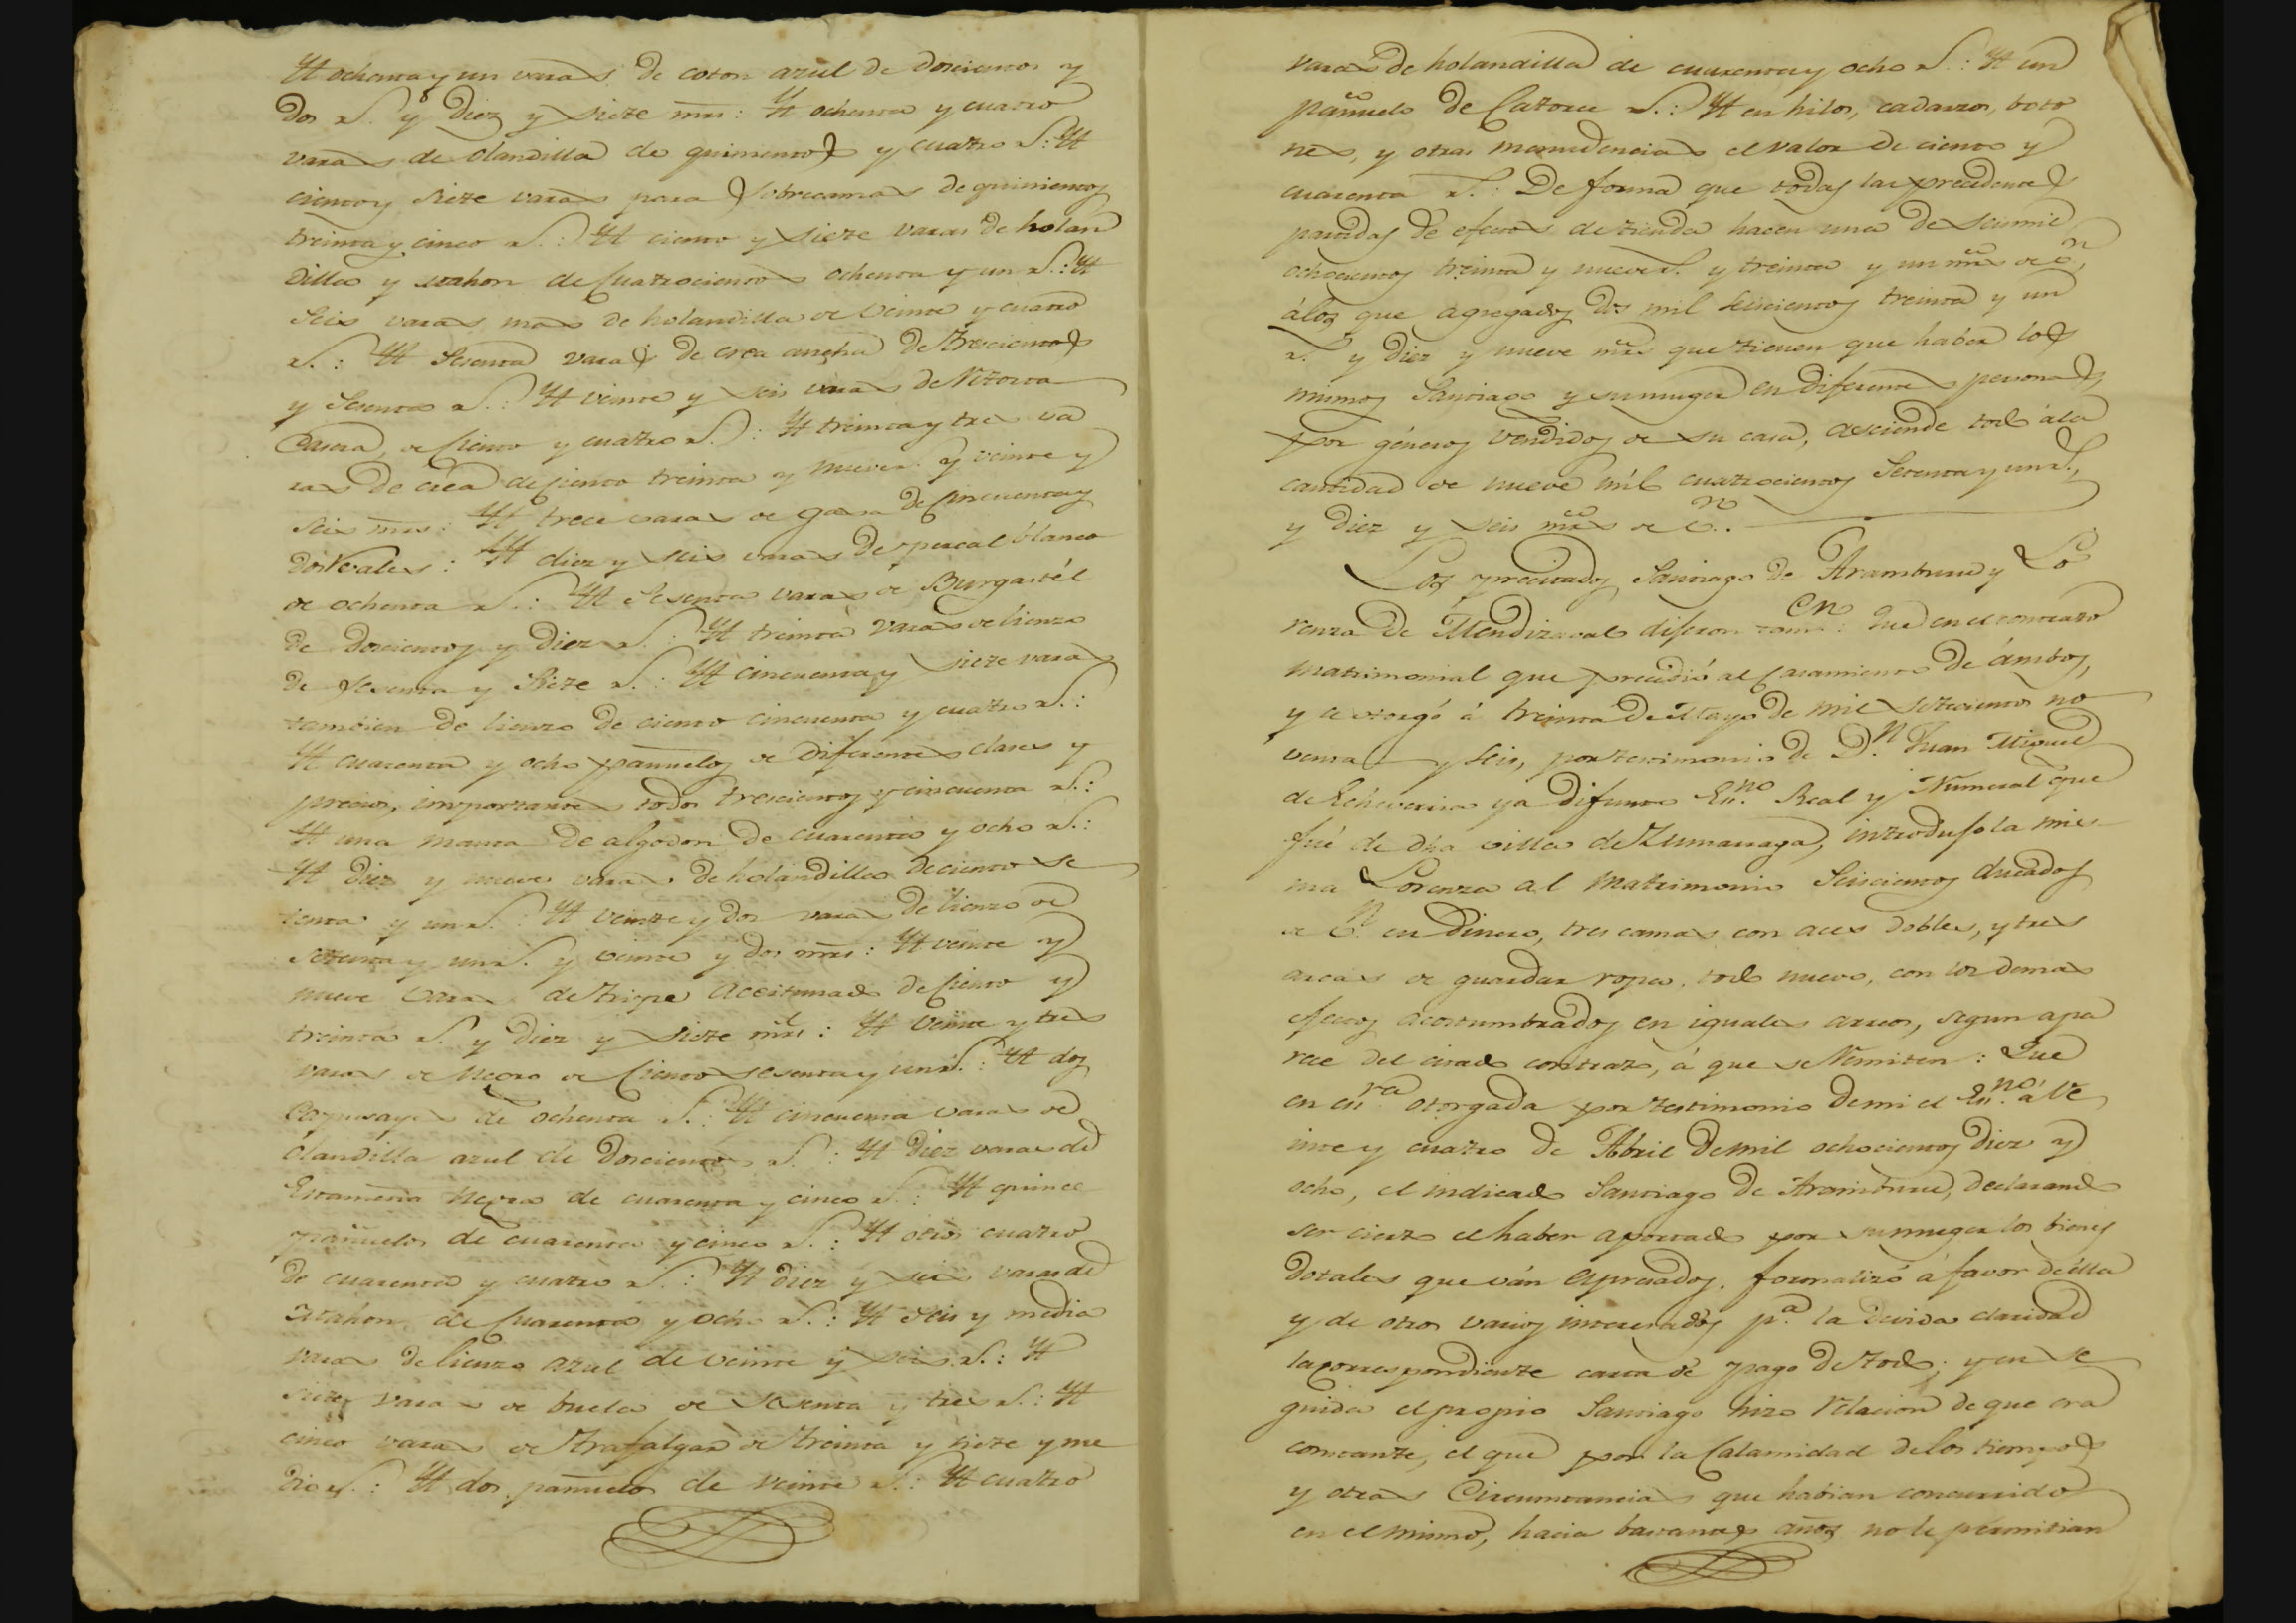 Yt ochenta y un varas de coton azul de doscientos y
dos r.s y diez y siete mrs: Yt ochenta y cuatro
varas de olandilla de quinientos y cuatro r.s: Yt
ciento y siete varas para sobrecamas de quinientos
treinta y cinco r.s: Yt ciento y siete varas de holan
dilla y mahon de cuatrocientos ochenta y un r.s: Yt
seis varas mas de holandilla de veinte y cuatro
r.s: Yt sesenta varas de crea ancha de trescientos
y sesenta r.s: Yt veinte y seis varas de Vitoria
casera, de ciento y cuatro r.s: Yt treinta y tres va
ras de crea de ciento treinta y nueve r.s y veinte y
seis mrs: Yt trece varas de gasa de cincuenta y
dos reales: Yt diez y seis varas de percal blanco
de ochenta r.s: Yt sesenta varas de Burgastél
de doscientos y diez r.s: Yt treinta varas de lienzo
de sesenta y siete r.s: Yt cincuenta y siete varas
tambien de lienzo de ciento cincuenta y cuatro r.s:
Yt cuarenta y ocho pañuelos de diferentes clases y
precios, importantes todos trescientos y cincuenta r.s:
Yt una manta de algodon de cuarenta y ocho r.s:
Yt diez y nueve varas de holandilla de ciento se
tenta y un r.s: Yt veinte y dos varas de lienzo de
setenta y un r.s y veinte y dos mrs: Yt veinte y
nueve varas de tripe aceitunado de ciento y
treinta r.s y diez y siete mrs: Yt veinte y tres
varas de negro de ciento sesenta y un r.s: Yt dos
de ochenta r.s: Yt cincuenta varas de
olandilla azul de doscientos r.s: Yt diez varas de
Estameña negra de cuarenta y cinco r.s: Yt quince
pañuelos de cuarenta y cinco r.s: Yt otros cuatro
de cuarenta y cuatro r.s: Yt diez y seis varas de
mahon de cuarenta y ocho r.s: Yt seis y media
varas de lienzo azul de veinte y seis r.s: Yt
siete varas de buela de sesenta y tres r.s: Yt
cinco varas de trafalgar de treinta y siete y me
dio r.s: Yt dos pañuelos de veinte r.s: Yt cuatro
varas de holandilla de cuarenta y ocho r.s: Yt un
pañuelo de catorce r.s: Yt en hilos, cadarzos, boto
nes, y otras menudencias el valor de ciento y
cuarenta r.s: De forma que todas las precedentes
partidas de efectos de tienda hacen una de seis mil
ochocientos treinta y nueve r.s y treinta y un mrs de v.n,
á los que agregados dos mil seiscientos treinta y un
r.s y diez y nueve mrs que tienen que haber los
mismos Santiago y su muger en diferentes personas
por géneros vendidos de su casa, asciende todo á la
cantidad de nueve mil cuatrocientos setenta y un r.s,
y diez y seis mrs de v.n.
Los precitados Santiago de Aramburu y Lo
renza de Mendizaval dijeron tam.en: Que en el contrato
matrimonial que precedió al casamiento de ámbos,
y se otorgó á treinta de Mayo de mil setecientos no
venta y seis, por testimonio de D.n Juan Miguel
de Echeverria ya difunto Es.no Real y Numeral que
fué de dha villa de Zumarraga, introdujo la mis
ma Lorenza al matrimonio seiscientos ducados
de v.n en dinero, tres camas con aces dobles, y tres
arcas de guardar ropa, todo nuevo, con los demas
efectos acostumbrados en iguales arreos, segun apa
rece del citado contrato, á que se remiten: Que
en es.ra otorgada por testimonio de mi el Es.no á ve
inte y cuatro de Abril de mil ochocientos diez y
ocho, el indicado Santiago de Aramburu, declarando
ser cierto el haber aportado por su muger los bienes
dotales que ván espresados, formalizó á favor de élla
y de otros varios interesados p.a la devida claridad
la correspondiente carta de pago de todo; y en se
guida el propio Santiago hizo relacion de que era
constante, el que por la calamidad de los tiempos
y otras circunstancias que habian concurrido
en el mismo, hacia bastantes años no le permitian